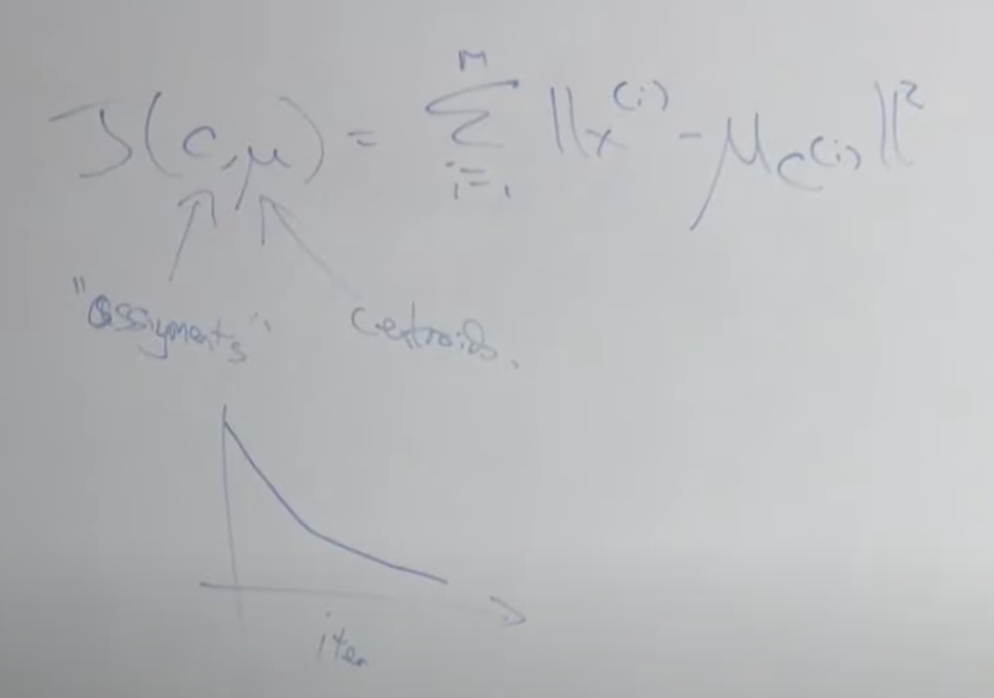 J(c,μ) = Σ_{i=1}^{m} ||x^{(i)} - μ_{c^{(i)}}||²
"assigments" centroids.
iter